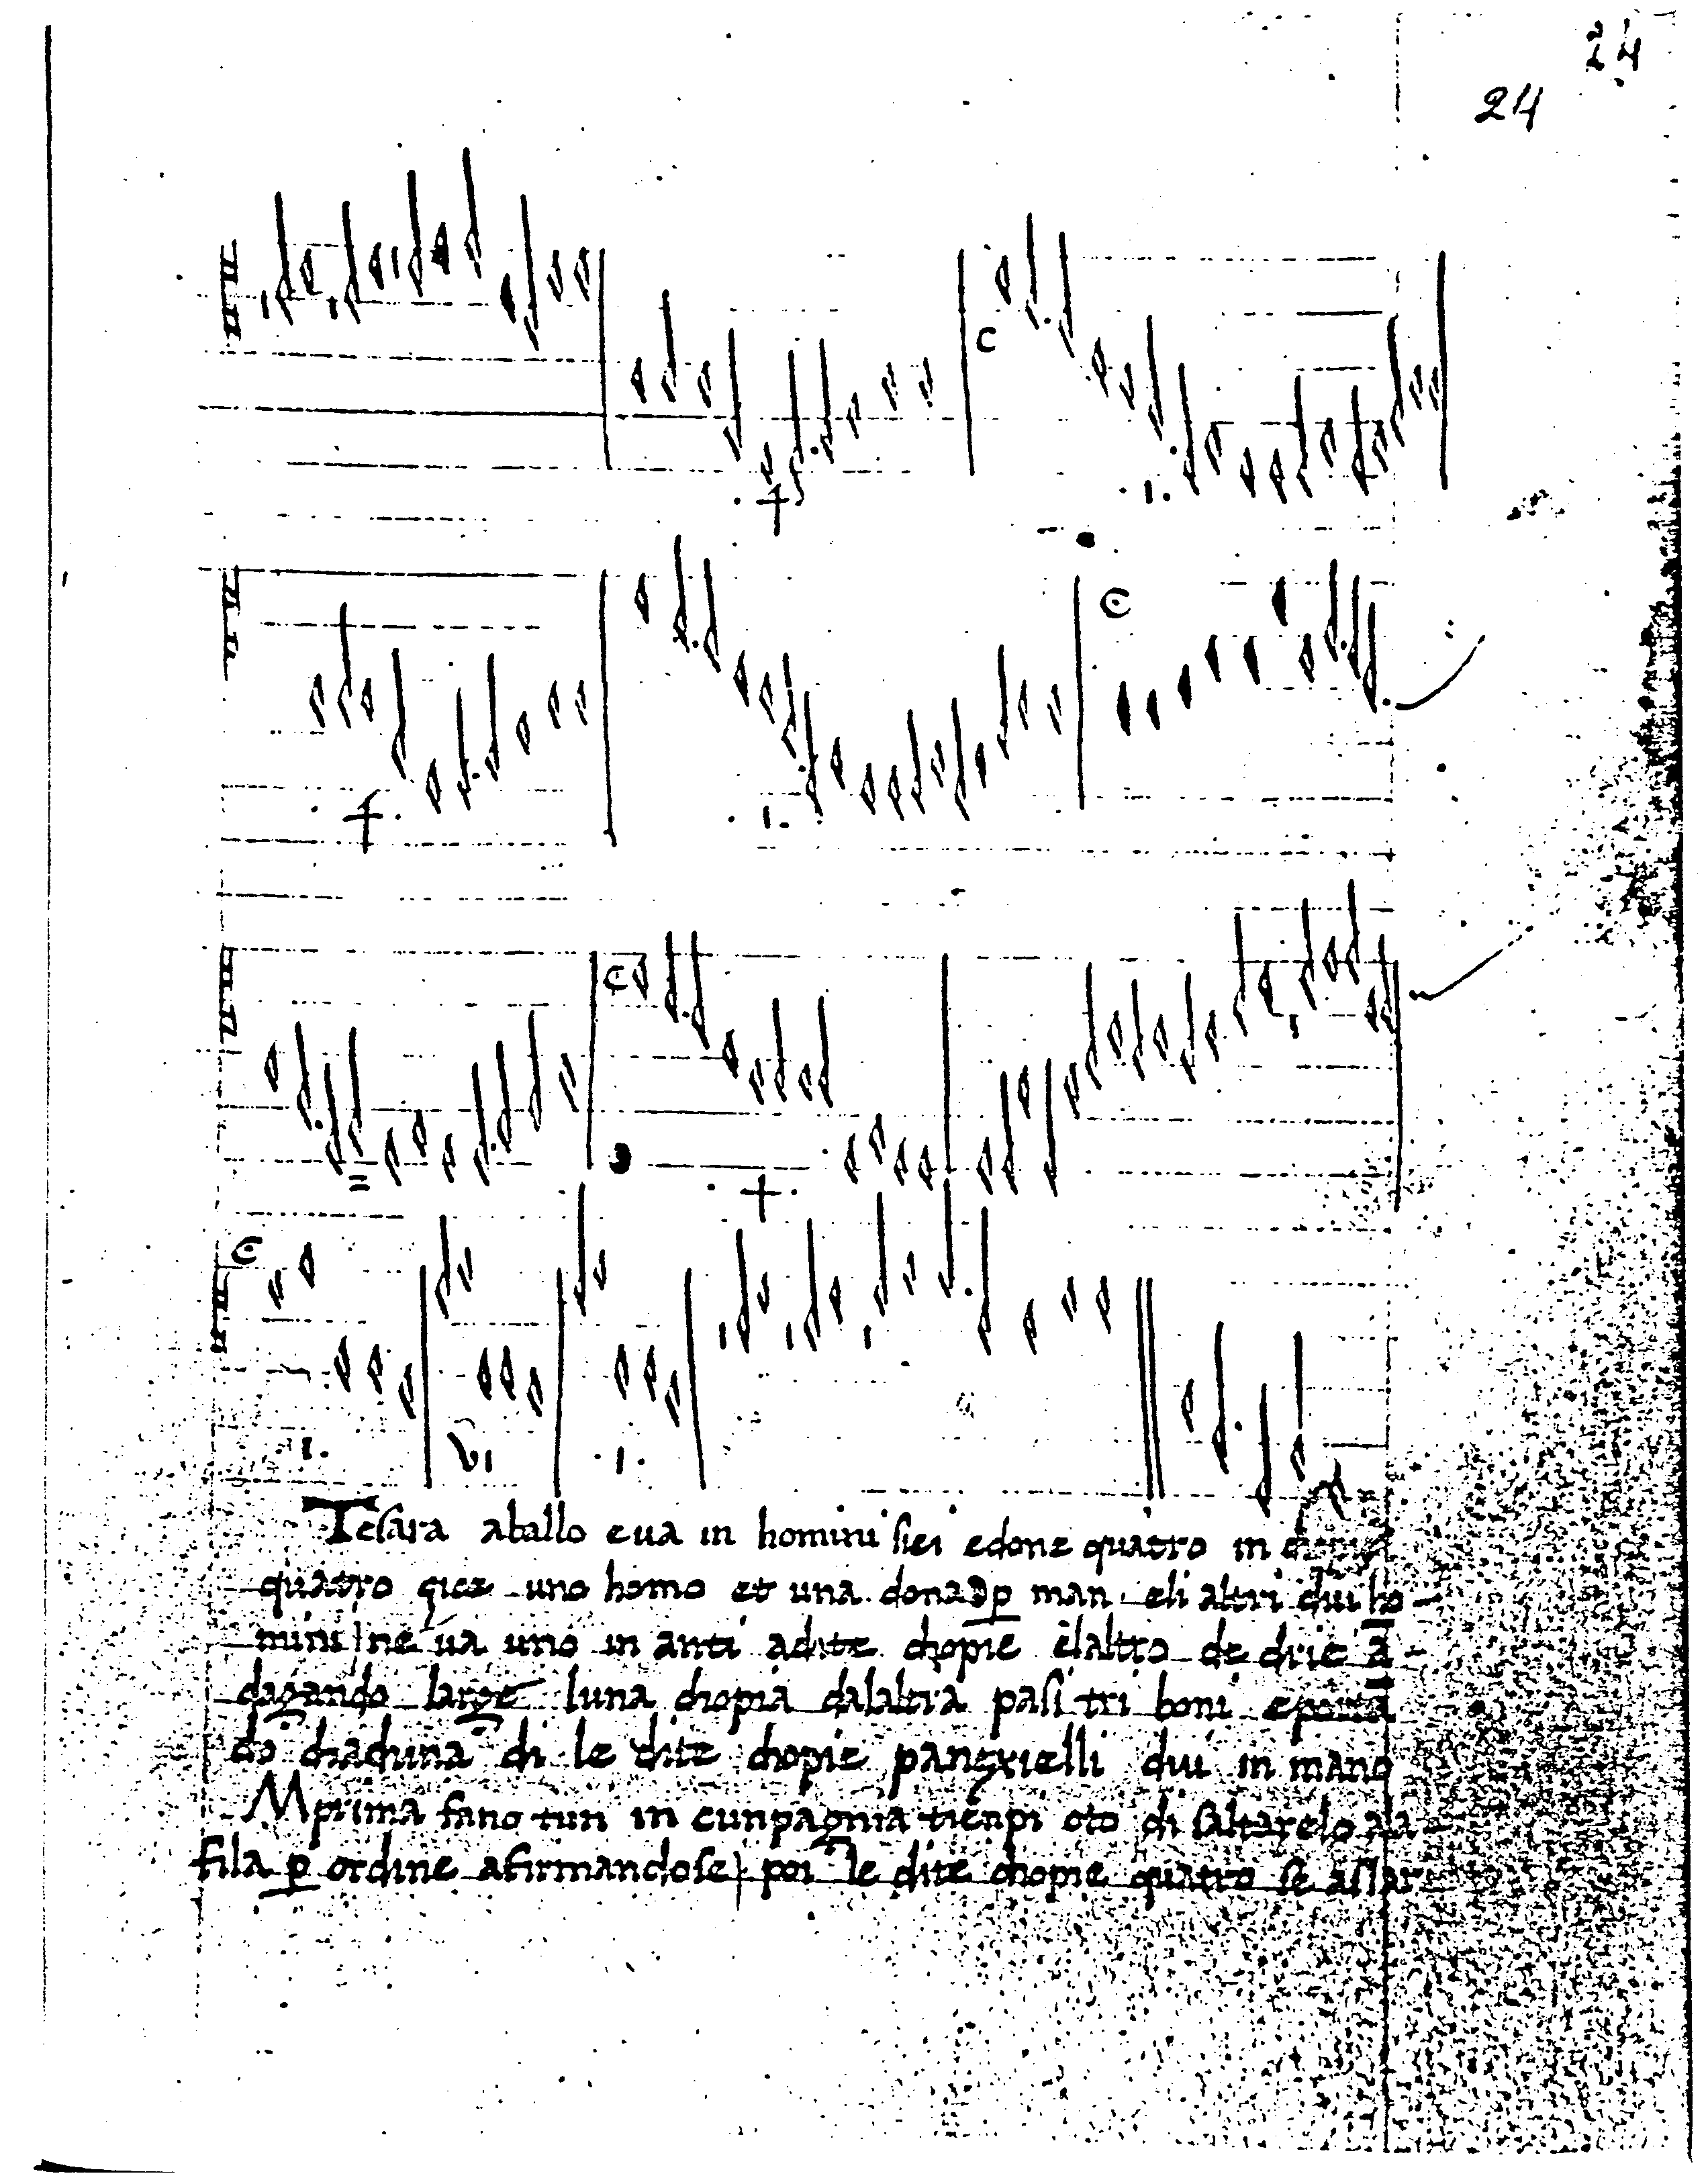 24
24
C
C
C
.I.
.I.
C
.I.
VI
.I.
Tesara aballo e va in homini siei e done quatro in
quatro çioe uno homo et una dona dp̱ man eli altri dui ho-
mini ne va uno in anti a dite chopie e laltro de drie ā-
dagando large luna chopia dalaltra pasi tri boni e portā
do chiachuna di le dite chopie dui in mano
Mprima fano tun in cunpagnia tienpi oto di saltarelo ala
fila p̱ ordine afirmandose poi le dite chopie quatro se aslar